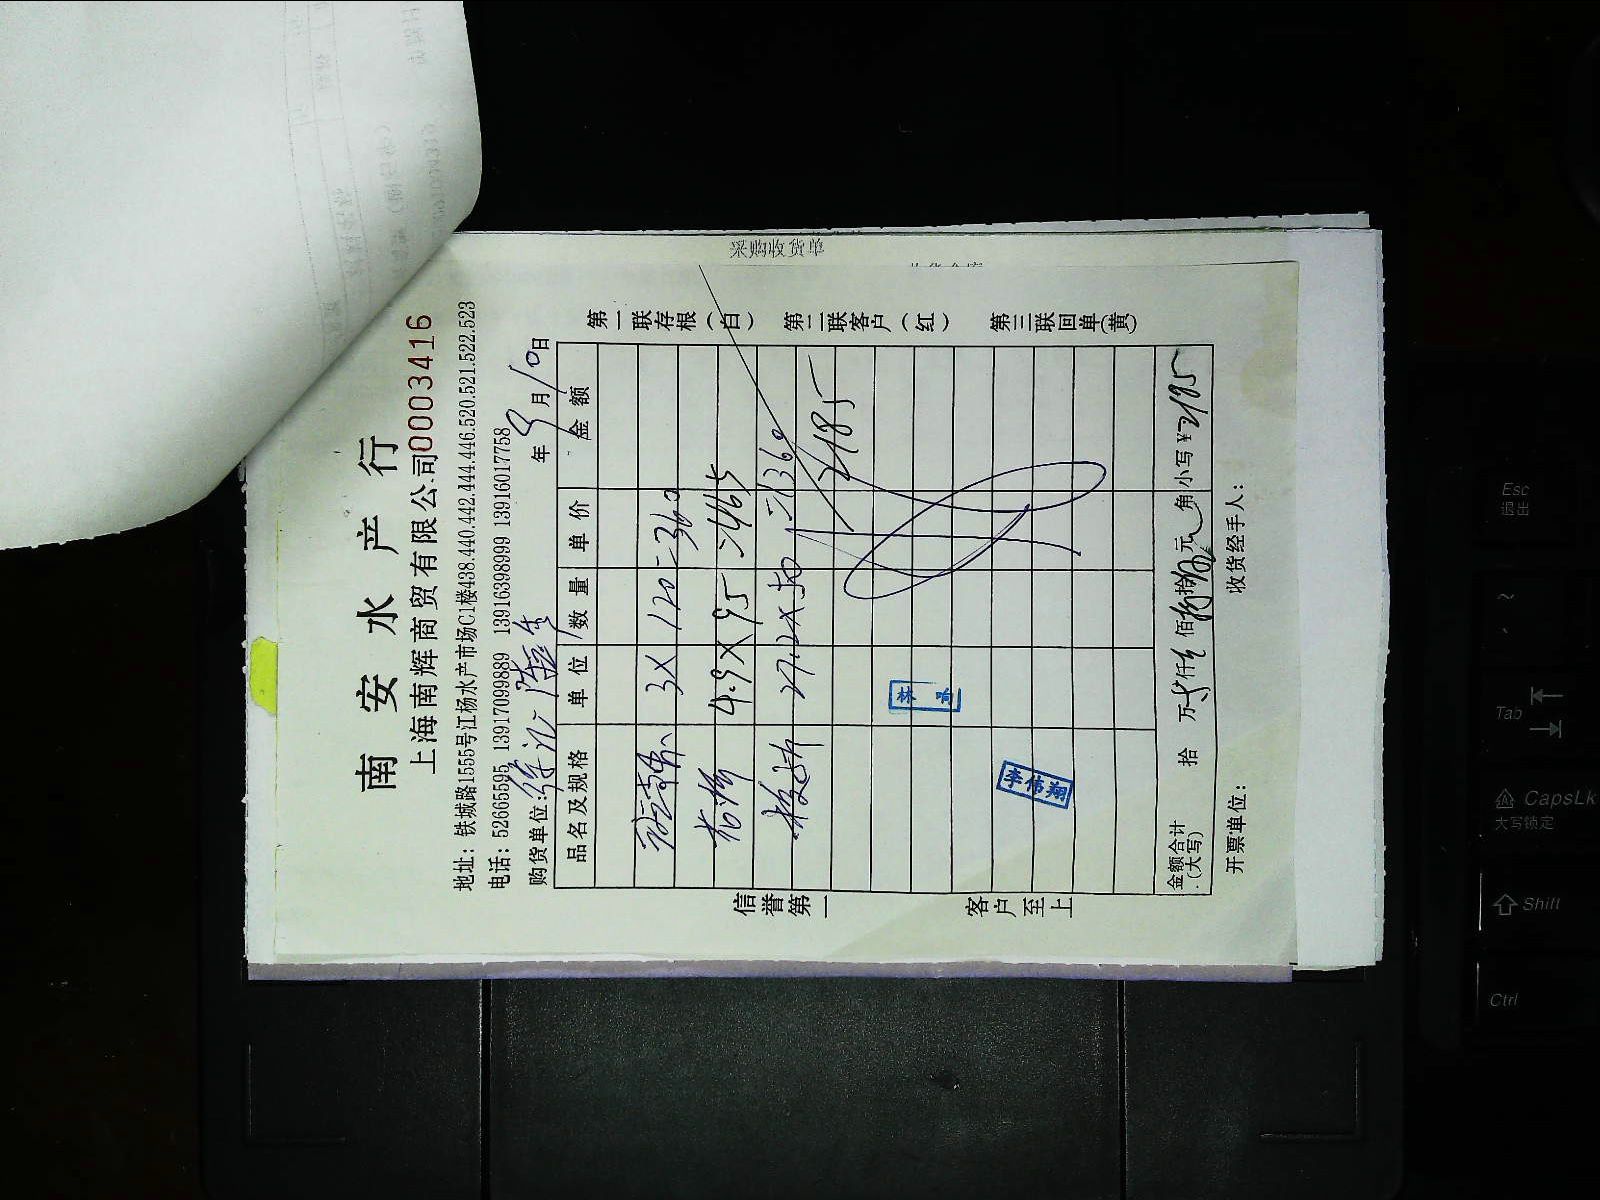 采购收货单
南安水产行
上海南辉商贸有限公司 0003416
地址：铁城路1555号江杨水产市场C1楼438.440.442.444.446.520.521.522.523
电话：52665595 13917099889 13916398999 13916017758
购货单位： 年 9 月 10 日
品名及规格 单位 数量 单价 金额
3X 120 = 360
4.9 X 95 = 465
27.2 X 50 = 1360
2185
林
李伟翔
金额合计(大写) 拾 万 仟 佰 拾 元 角 小写¥2185
开票单位： 收货经手人：
信誉第一 客户至上
第一联存根（白） 第二联客户（红） 第三联回单（黄）
Esc
退出
~
Tab
CapsLk
大写锁定
Shift
Ctrl